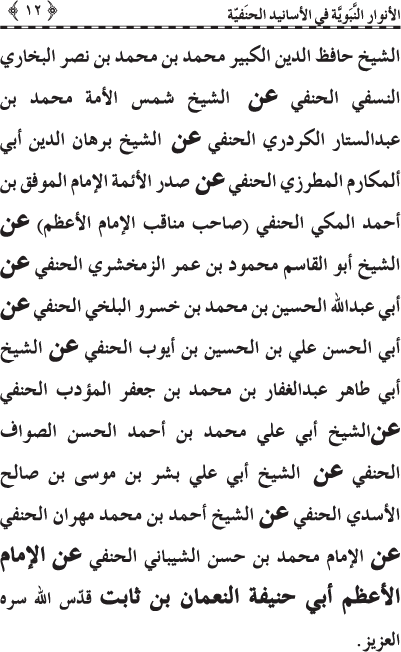 الأنوار النَّبَويَّة في الأسانيد الحنَفيّة ﴿ ١٢ ﴾
الشيخ حافظ الدين الكبير محمد بن محمد بن نصر البخاري
النسفي الحنفي عن الشيخ شمس الأمة محمد بن
عبدالستار الكردري الحنفي عن الشيخ برهان الدين أبي
ألمكارم المطرزي الحنفي عن صدر الأئمة الإمام الموفق بن
أحمد المكي الحنفي (صاحب مناقب الإمام الأعظم) عن
الشيخ أبو القاسم محمود بن عمر الزمخشري الحنفي عن
أبي عبدالله الحسين بن محمد بن خسرو البلخي الحنفي عن
أبي الحسن علي بن الحسين بن أيوب الحنفي عن الشيخ
أبي طاهر عبدالغفار بن محمد بن جعفر المؤدب الحنفي
عن الشيخ أبي علي محمد بن أحمد الحسن الصواف
الحنفي عن الشيخ أبي علي بشر بن موسى بن صالح
الأسدي الحنفي عن الشيخ أحمد بن محمد مهران الحنفي
عن الإمام محمد بن حسن الشيباني الحنفي عن الإمام
الأعظم أبي حنيفة النعمان بن ثابت قدّس الله سره
العزيز.